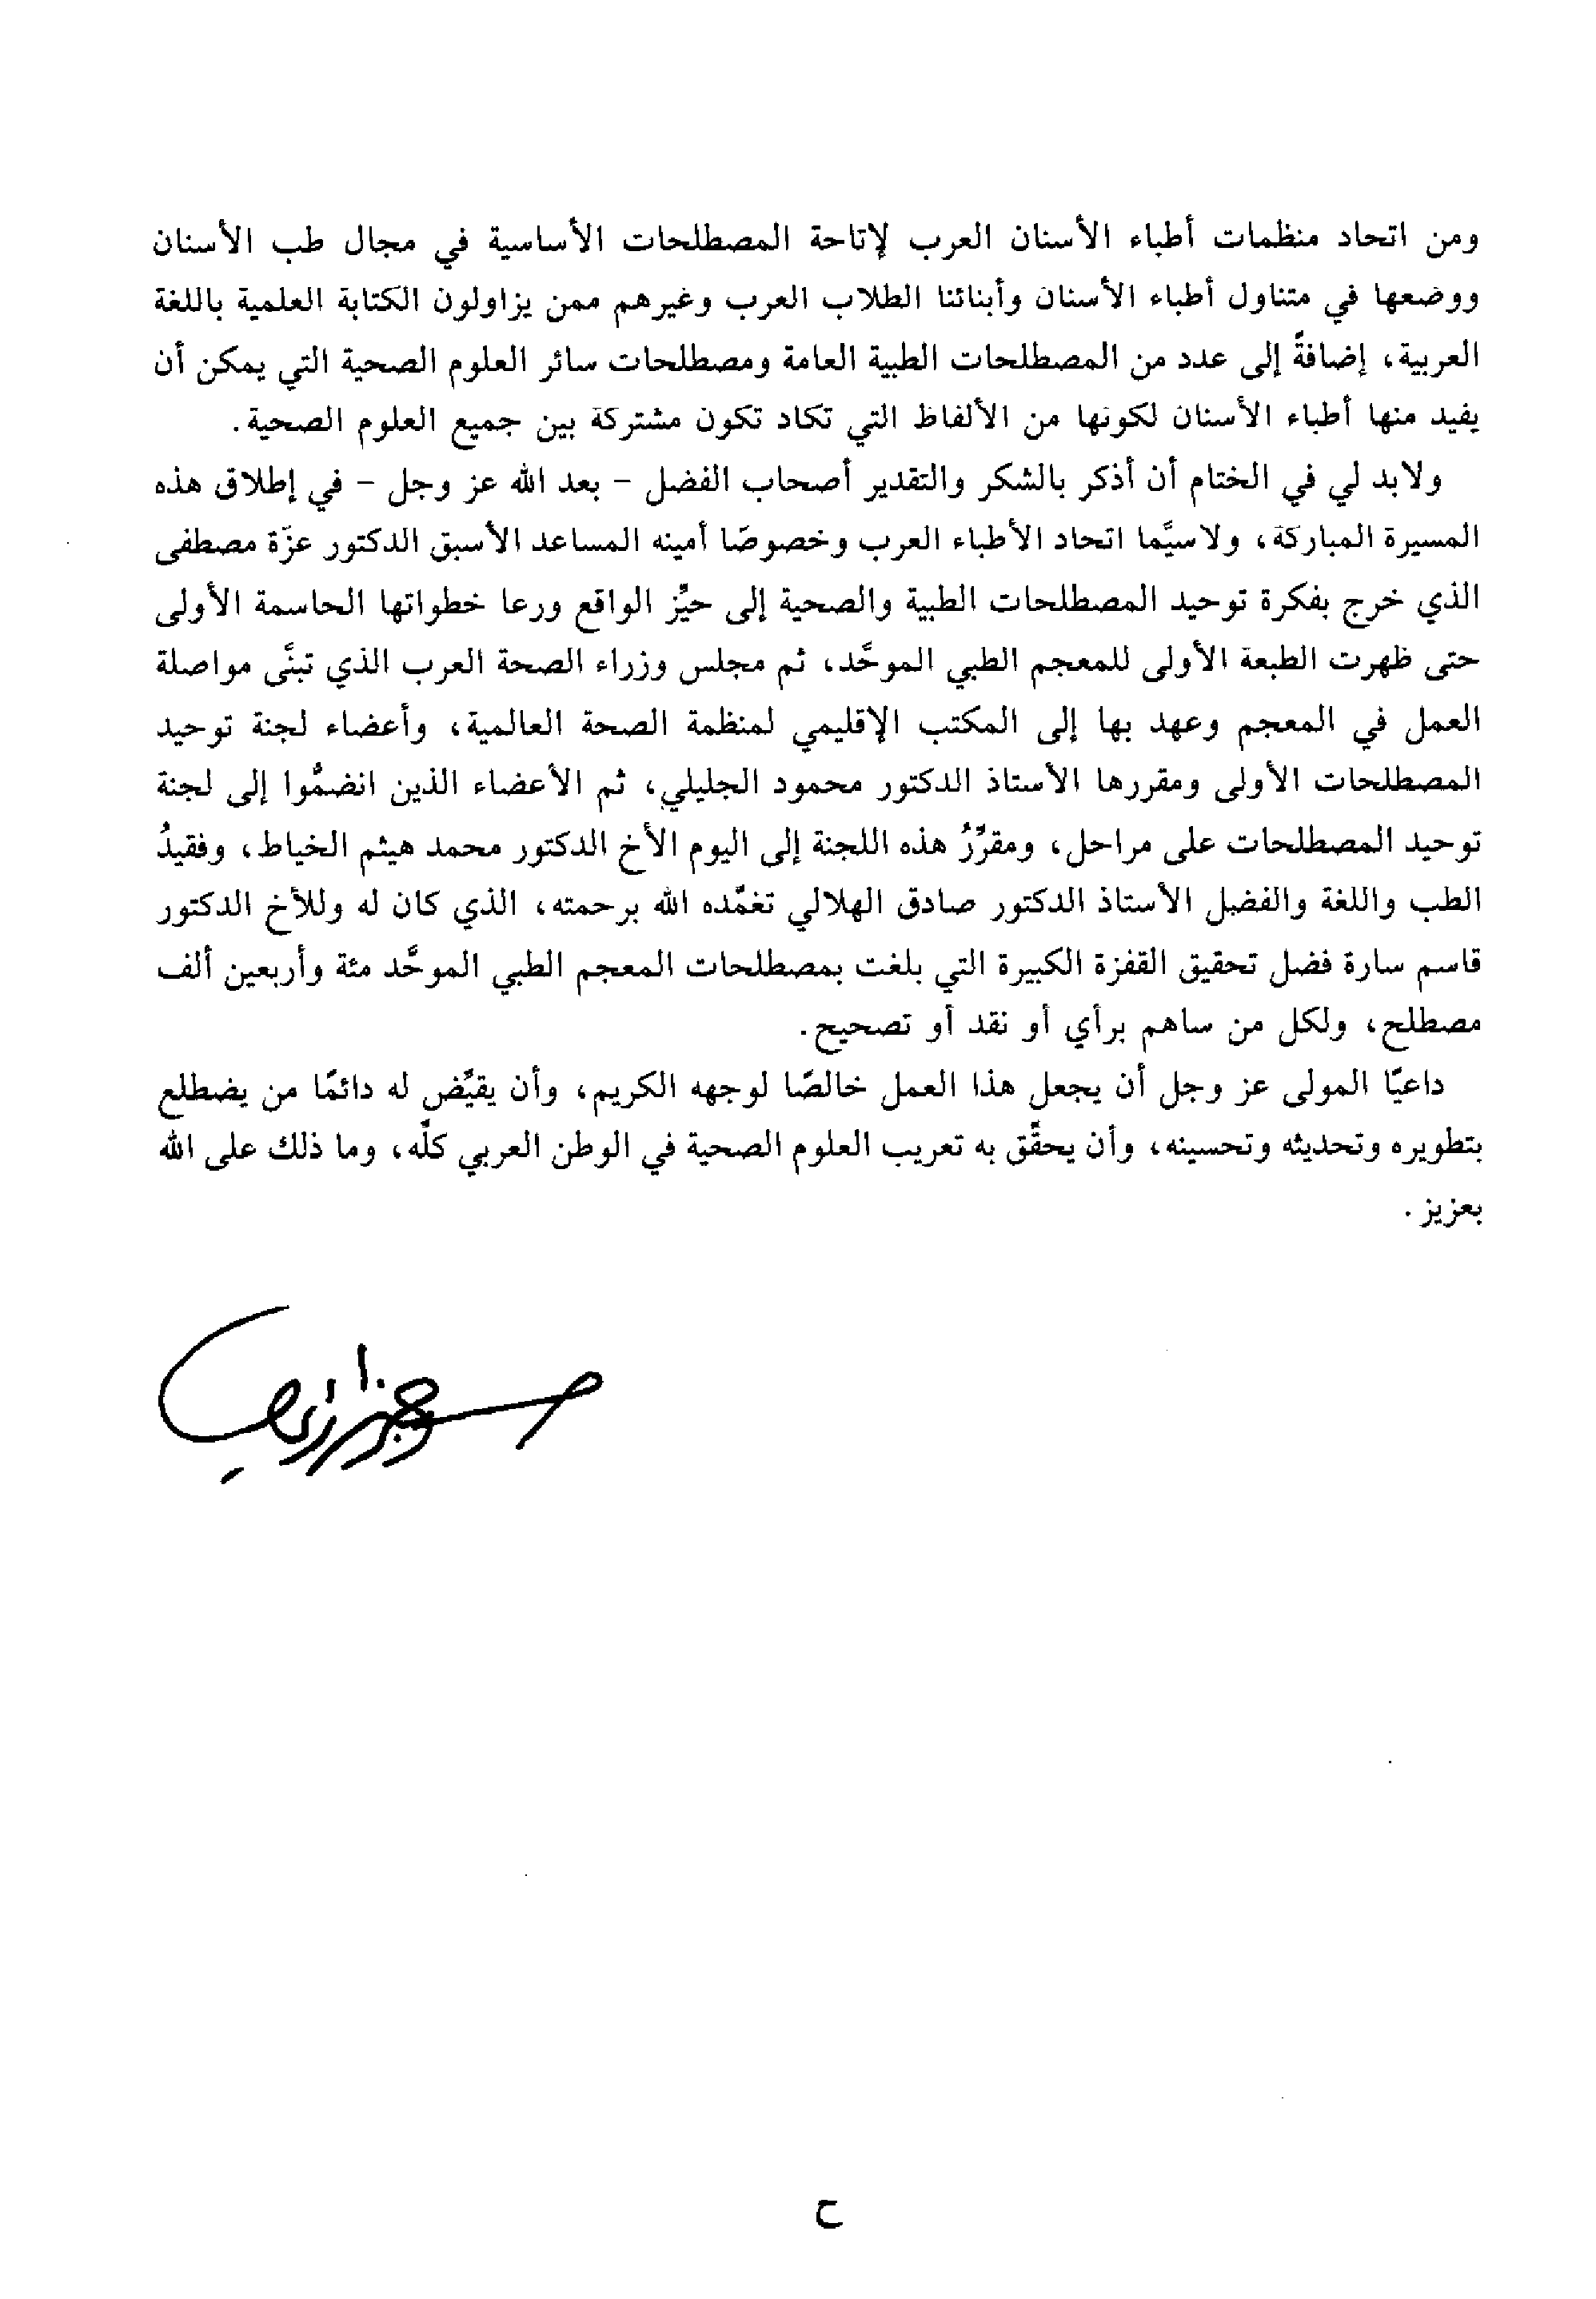 ومن اتحاد منظمات أطباء الأسنان العرب لإتاحة المصطلحات الأساسية في مجال طب الأسنان
ووضعها في متناول أطباء الأسنان وأبنائنا الطلاب العرب وغيرهم ممن يزاولون الكتابة العلمية باللغة
العربية، إضافةً إلى عدد من المصطلحات الطبية العامة ومصطلحات سائر العلوم الصحية التي يمكن أن
يفيد منها أطباء الأسنان لكونها من الألفاظ التي تكاد تكون مشتركة بين جميع العلوم الصحية.
ولابد لي في الختام أن أذكر بالشكر والتقدير أصحاب الفضل – بعد الله عز وجل – في إطلاق هذه
المسيرة المباركة، ولاسيَّما اتحاد الأطباء العرب وخصوصًا أمينه المساعد الأسبق الدكتور عزّة مصطفى
الذي خرج بفكرة توحيد المصطلحات الطبية والصحية إلى حيِّز الواقع ورعا خطواتها الحاسمة الأولى
حتى ظهرت الطبعة الأولى للمعجم الطبي الموحَّد، ثم مجلس وزراء الصحة العرب الذي تبنَّى مواصلة
العمل في المعجم وعهد بها إلى المكتب الإقليمي لمنظمة الصحة العالمية، وأعضاء لجنة توحيد
المصطلحات الأولى ومقررها الأستاذ الدكتور محمود الجليلي، ثم الأعضاء الذين انضمُّوا إلى لجنة
توحيد المصطلحات على مراحل، ومقرِّرُ هذه اللجنة إلى اليوم الأخ الدكتور محمد هيثم الخياط، وفقيدُ
الطب واللغة والفضل الأستاذ الدكتور صادق الهلالي تغمّده الله برحمته، الذي كان له وللأخ الدكتور
قاسم سارة فضل تحقيق القفزة الكبيرة التي بلغت بمصطلحات المعجم الطبي الموحَّد مئة وأربعين ألف
مصطلح، ولكل من ساهم برأي أو نقد أو تصحيح.
داعيًا المولى عز وجل أن يجعل هذا العمل خالصًا لوجهه الكريم، وأن يقيِّض له دائمًا من يضطلع
بتطويره وتحديثه وتحسينه، وأن يحقِّق به تعريب العلوم الصحية في الوطن العربي كلِّه، وما ذلك على الله
بعزيز.
ح